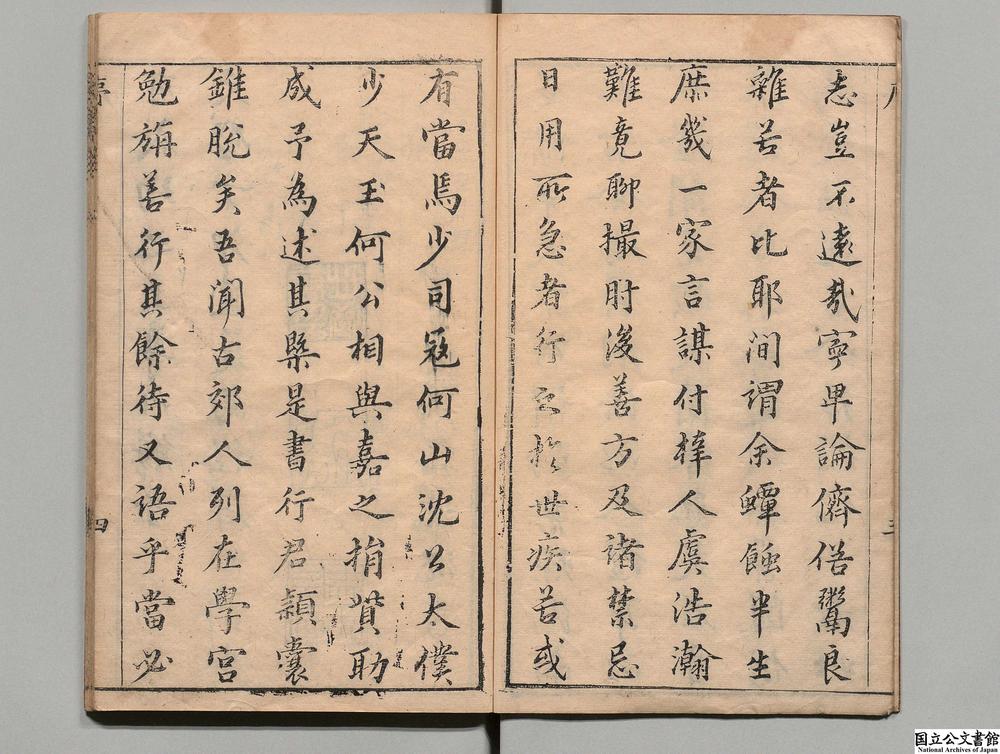 志豈不遠哉寧卑論儕俗鬻良
雜苦者比耶間謂余蟫蝕半生
庶幾一家言謀付梓人虞浩瀚
難竟聊撮肘後善方及諸禁忌
日用所急者行之於世疾苦或
三
有當焉少司寇何山沈公太僕
少天玉何公相與嘉之捐貲助
成予為述其槩是書行君穎囊
錐脫矣吾聞古郊人列在學宮
勉旃善行其餘待又語乎當必
序
四
国立公文書館
National Archives of Japan